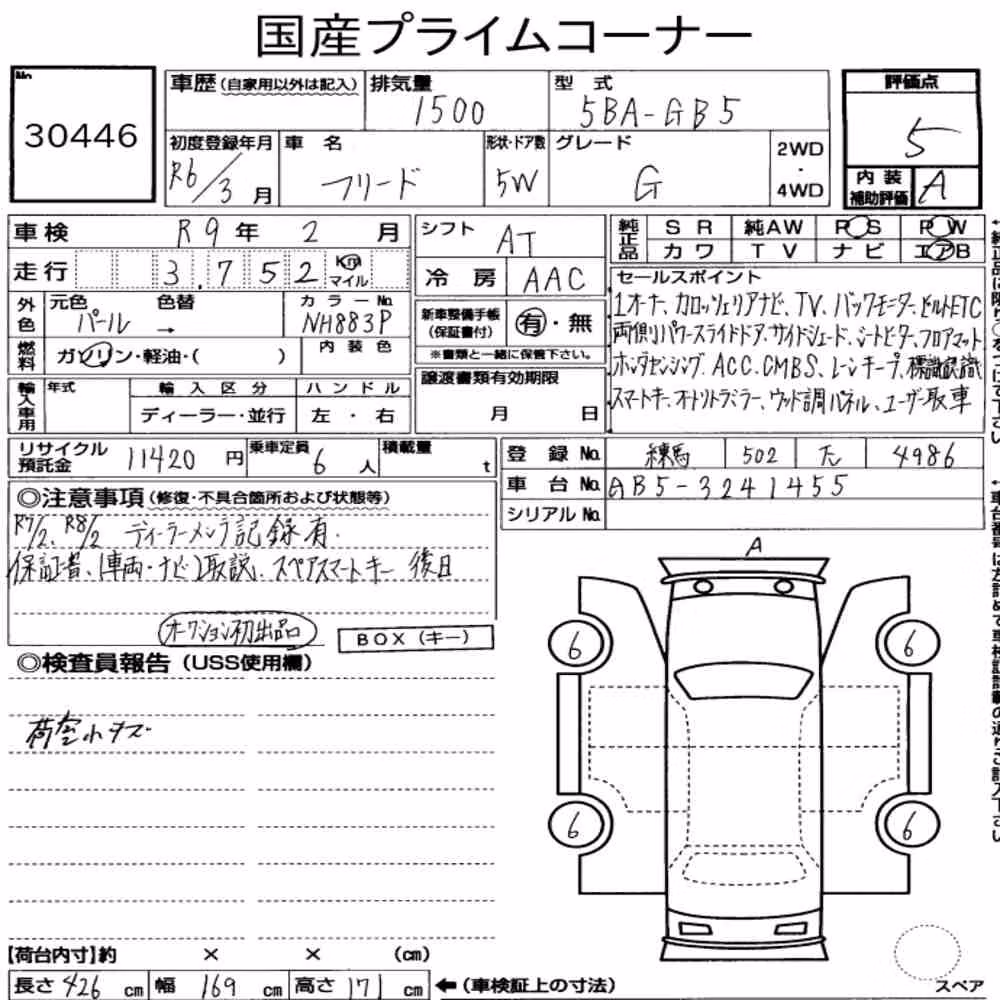 国産プライムコーナー
No.
30446
車歴 (自家用以外は記入)
排気量
1500
型式
5BA-GB5
評価点
5
内装
補助評価
A
初度登録年月
R6/3月
車名
フリード
形状・ドア数
5W
グレード
G
2WD
・
4WD
車検 R9年 2月
走行 3,752 Km マイル
シフト
AT
冷房 AAC
純正品
SR 純AW PS PW
カワ TV ナビ エアB
外色
元色 色替
パール →
カラーNo.
NH883P
燃料
ガソリン・軽油・( )
内装色
新車整備手帳
(保証書付)
有・無
※書類と一緒に保管下さい。
セールスポイント
1オーナ、カロッツェリアナビ、TV、バックモニター、ビルトETC
両側パワースライドドア、サイドシェード、シートヒーター、フロアマット
ホンダセンシング、ACC、CMBS、レーンキープ、標識認識
スマートキー、オートリトラミラー、ウッド調パネル、ユーザー取車
輸入車用
年式
輸入区分
ディーラー・並行
ハンドル
左・右
譲渡書類有効期限
月 日
リサイクル
預託金
11420 円
乗車定員
6 人
積載量
t
登録No. 練馬 502 た 4986
車台No. GB5-3241455
シリアルNo.
◎注意事項 (修復・不具合箇所および状態等)
R7/2、R8/2 ディーラーメンテ記録有.
保証書、(車両・ナビ)取説、スペアスマートキー 後日
オークション初出品
BOX(キー)
◎検査員報告 (USS使用欄)
荷室小キズ
A
6
6
6
6
スペア
【荷台内寸】約 × × (cm)
長さ 426 cm 幅 169 cm 高さ 171 cm ←(車検証上の寸法)